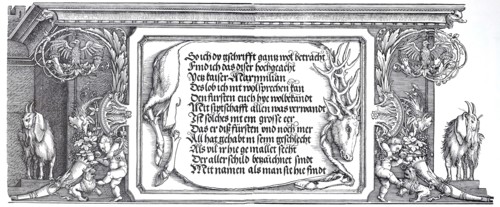 So ich dy gschrifft gantz wol betracht
Find ich das diser hochgeacht
Neu kaiser Maxymilian
Des lob ich nit wolsprechen kan
Den fursten euch hye wolbekandt
Mit siptschafft allen was verwandt
Ist solches nit ein grosse eer
Das er diß fursten und noch mer
All hat gehabt in seim geschlecht
Als vil ir hie gemallet secht
Der aller schild bezaichnet sindt
Mit namen als man sie hie findt